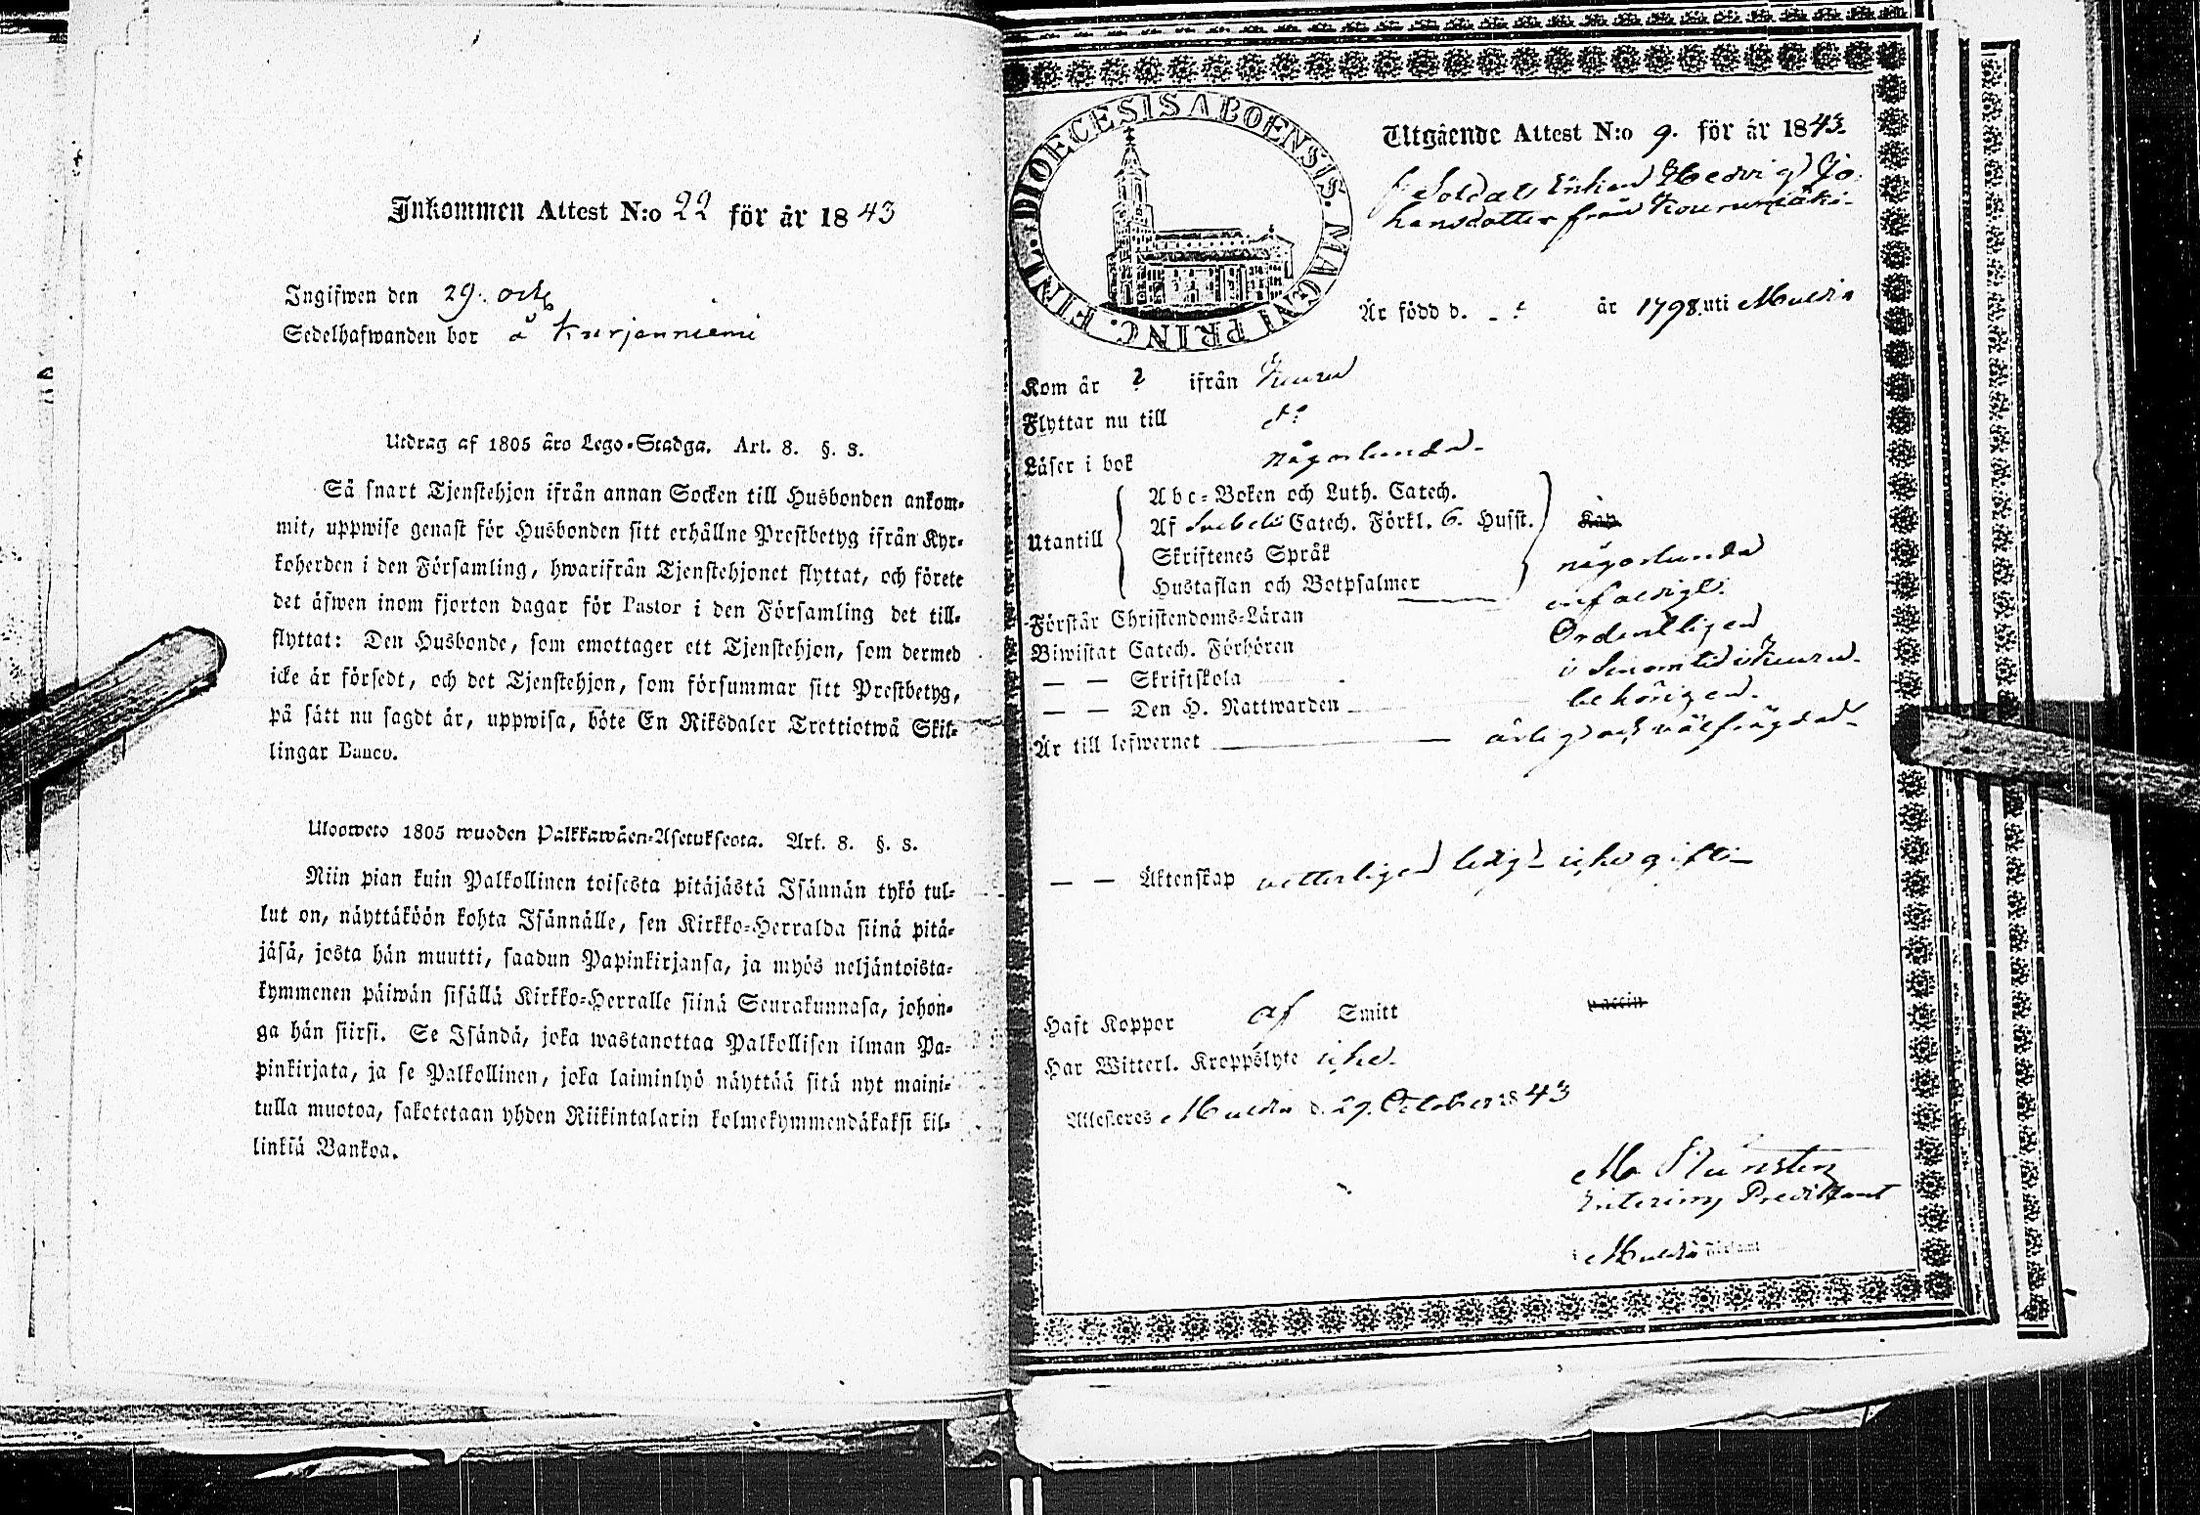 Inkommen Attest N:o 22 för år 1843
Ingifwen den 29. octb
Sedelhafwanden bor å Kurjenniemi
Utdrag af 1805 års Lego-Stadga. Art. 8. §. 3.
Så snart Tjenstehjon ifrån annan Socken till Husbonden ankom-
mit, uppwise genast för Husbonden sitt erhållne Prestbetyg ifrån Kyr-
koherden i den Församling, hwarifrån Tjenstehjonet flyttat, och förete
det äfwen inom fjorton dagar för Pastor i den Församling det till-
flyttat: Den Husbonde, som emottager ett Tjenstehjon, som dermed
icke är försedt, och det Tjenstehjon, som försummar sitt Prestbetyg,
på sätt nu sagdt är, uppwisa, böte En Riksdaler Trettiotwå Skil-
lingar Banco.
Uloosweto 1805 wuoden Palkkawäen-Asetuksesta. Art. 8. §. 3.
Niin pian kuin Palkollinen toisesta pitäjästä Isännän tykö tul-
lut on, näyttäköön kohta Isännälle, sen Kirkko-Herralda siinä pitä-
jäsä, josta hän muutti, saadun Papinkirjansa, ja myös neljäntoista-
kymmenen päiwän sisällä Kirkko-Herralle siinä Seurakunnasa, johon-
ga hän siirsi. Se Isändä, joka wastanottaa Palkollisen ilman Pa-
pinkirjata, ja se Palkollinen, joka laiminlyö näyttää sitä nyt maini-
tulla muotoa, sakotetaan yhden Riikintalarin kolmekymmendäkaksi kil-
linkiä Bankoa.
DIOECESIS ABOENSIS. MAGNI PRINC. FINL.
Utgående Attest N:o 9. för år 1843
Soldats Enkan Hedvig Jo
hansdotter från
Är född d. - ? år 1798 uti Muldia
Kom år ? ifrån Keuru
Flyttar nu till d:o
Läser i bok någorlunda
Utantill
Abc-Boken och Luth. Catech.
Af Svebelii Catech. Förkl. 6. Husst.
Skriftenes Språk
Hustaflan och Botpsalmer
någorlunda
Förstår Christendoms-Läran enfaldigt
Biwistat Catech. Förhören Ordentligen
— — Skriftskola i sinom tid i Keuru
— — Den H. Nattwarden behörigen
Är till lefwernet ärlig och välfrägdad
— — Äktenskap vetterligen ledig till giftet
Haft Koppor af Smitt
Har Witterl. Kroppslyte icke
Attesteras Muldia d. 29. October 1843
Interims Predikant
i Muldia Församl